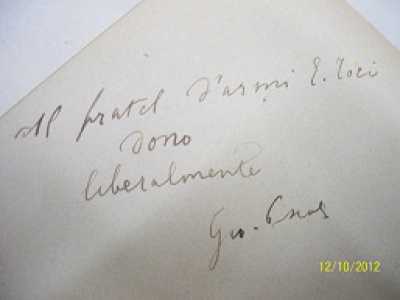 Al fratel d'armi E. Toci
dono
liberalmente
Gio.
12/10/2012